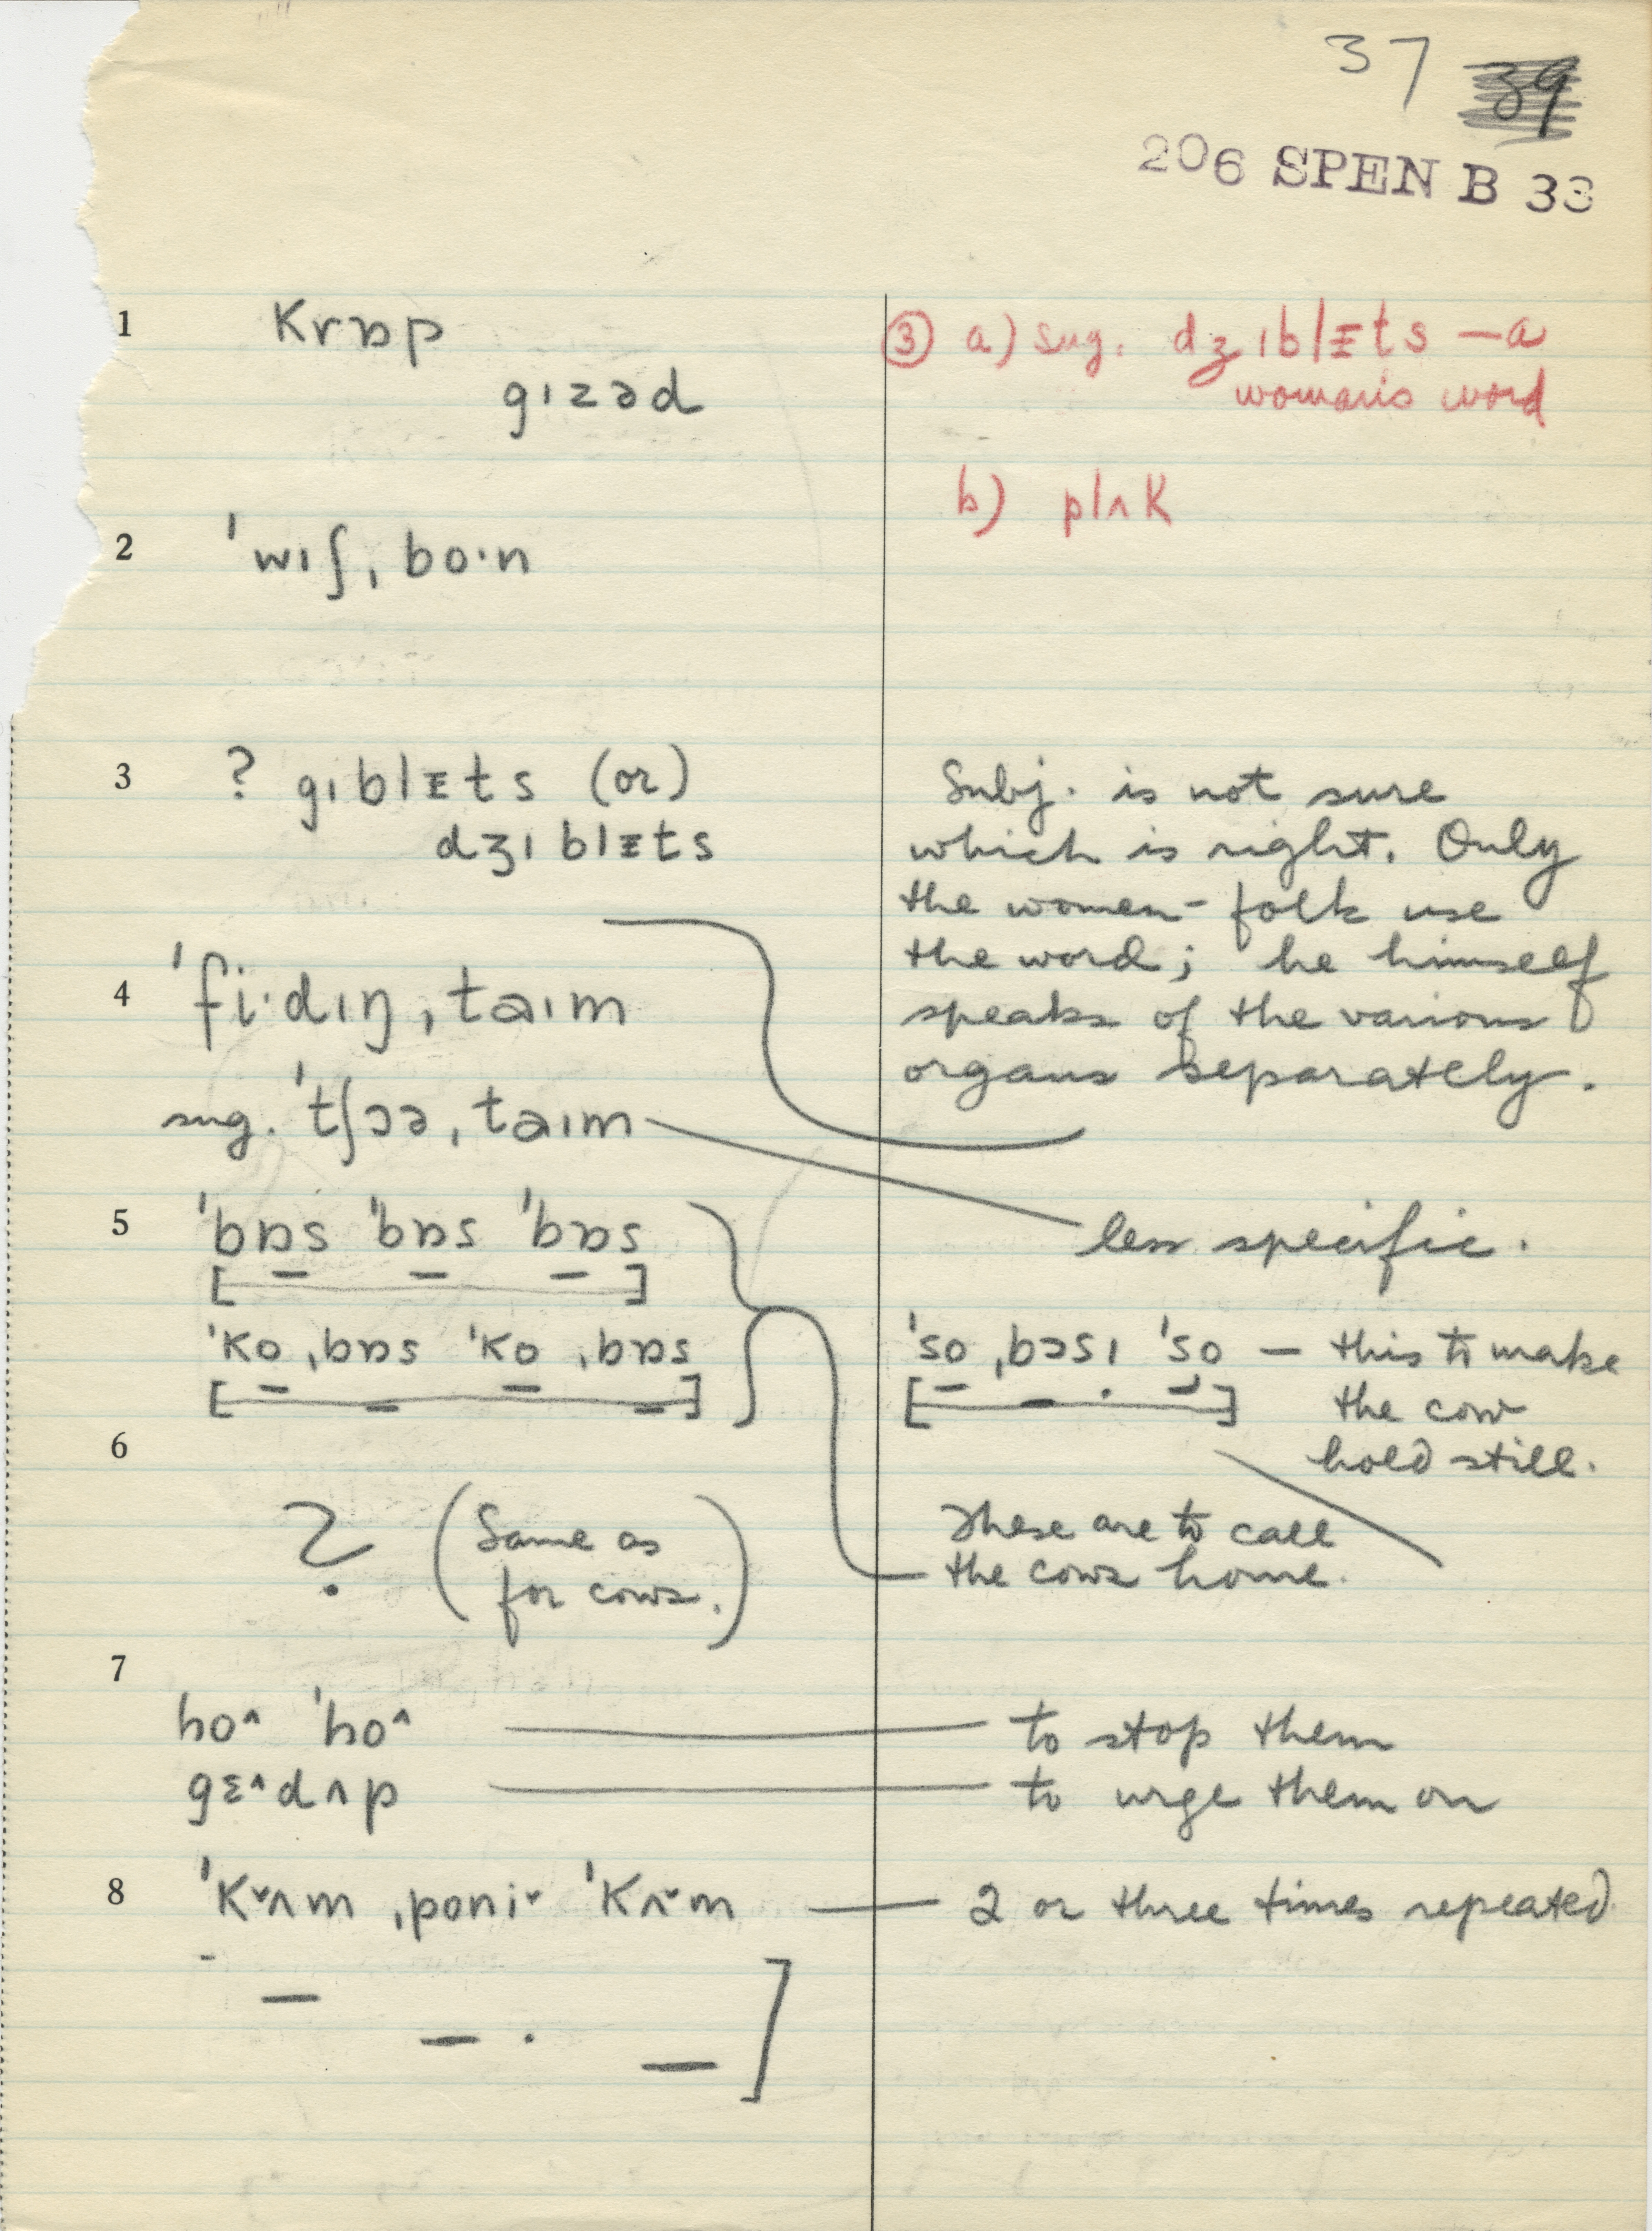 37 39
206 SPEN B 33
1 krɒp
gɪzəd
③ a) sug. dʒɪblɪ̵ts — a
woman's word
b) plʌk
2 ˈwɪʃˌboˑn
3 ? gɪblɪ̵ts (or)
dʒɪblɪ̵ts
Subj. is not sure
which is right. Only
the women-folk use
the word; he himself
speaks of the various
organs separately.
4 ˈfiˑdɪŋˌtaɪm
sug. ˈtʃɔəˌtaɪm
less specific.
5 ˈbɒs ˈbɒs ˈbɒs
[ – – – ]
ˈko ˌbɒs ˈko ˌbɒs
[ – – – – ]
ˈso ˌbɔsɪ ˈso — this to make
the cow
hold still.
[ – – · – ]
6
? (Same as
for cows.)
These are to call
the cows home.
7
ho^ ˈho^ — to stop them
gɛ^dʌp — to urge them on
8 ˈkˇʌm ˌponiˇ ˈkʌˇm — 2 or three times repeated
– – – · – ]